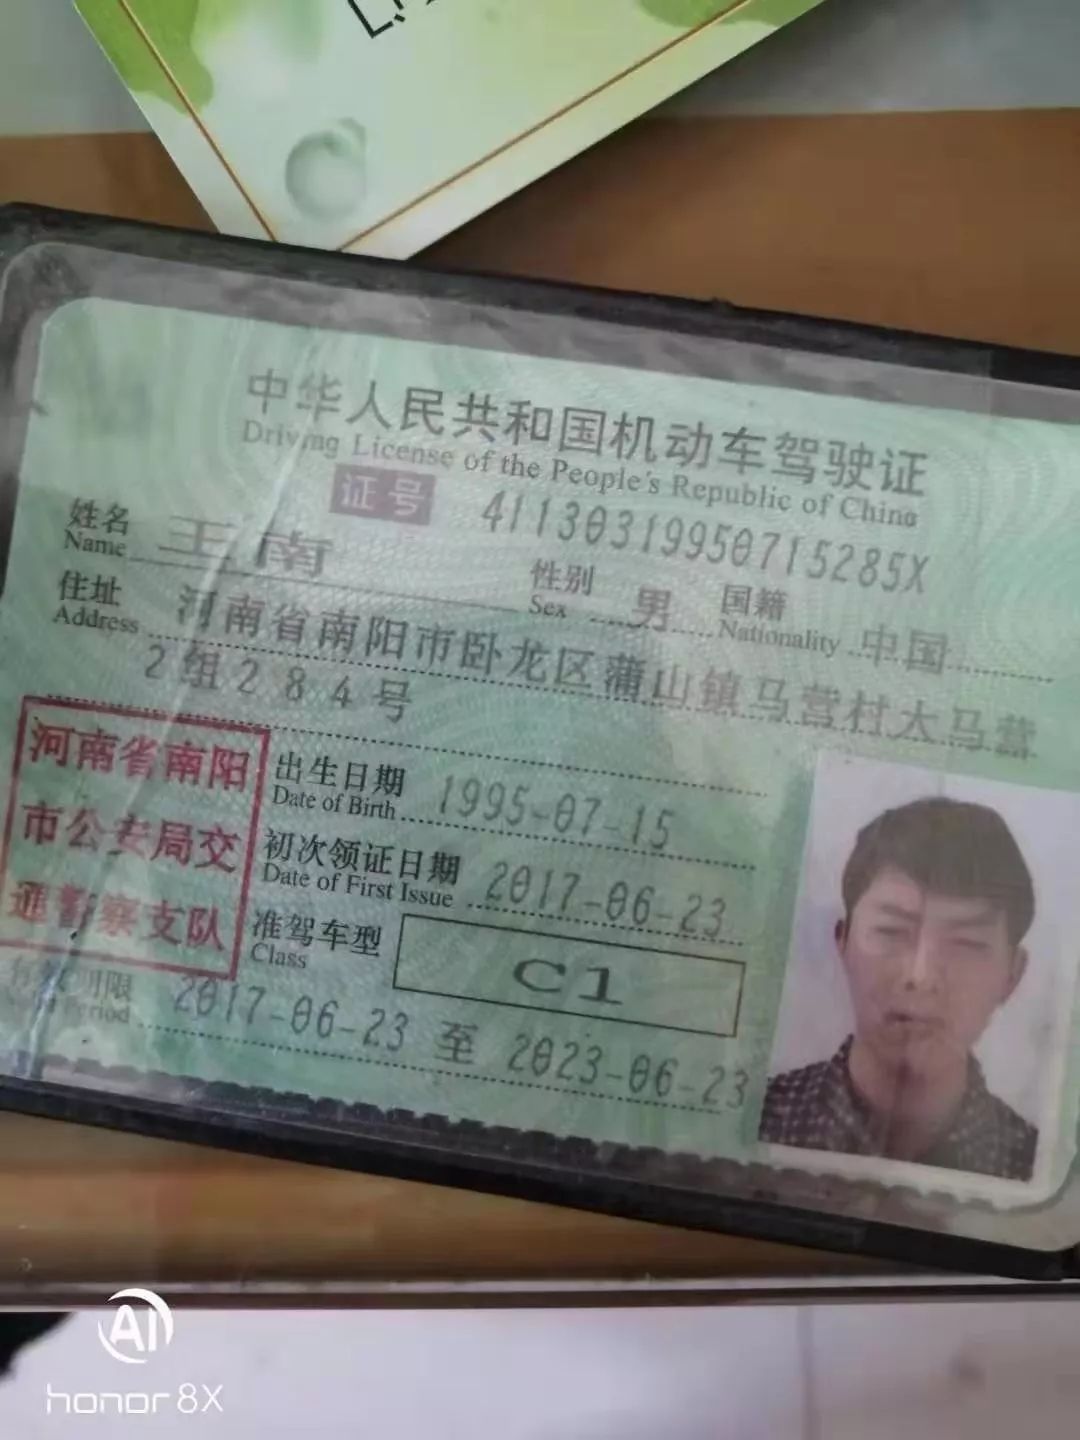 中华人民共和国机动车驾驶证
Driving License of the People's Republic of China
证号 41130319950715285X
姓名 王南
Name
性别 男 国籍 中国
Sex Nationality
住址 河南省南阳市卧龙区蒲山镇马营村大马营
Address
2组284号
河南省南阳
市公安局交
通警察支队
出生日期 1995-07-15
Date of Birth
初次领证日期 2017-06-23
Date of First Issue
准驾车型 C1
Class
有效期限 2017-06-23 至 2023-06-23
Period
AI
honor 8X